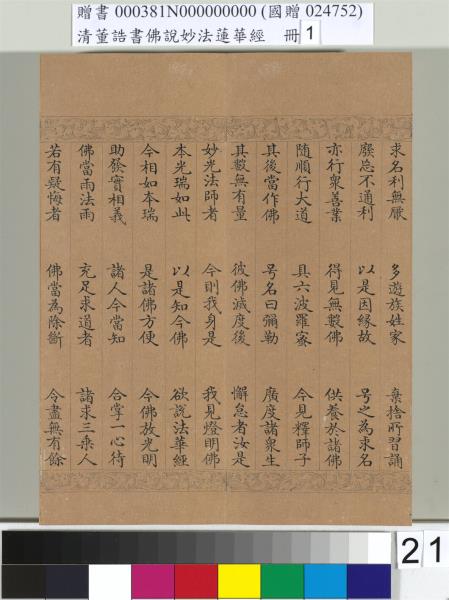 贈書 000381N000000000 (國贈 024752)
清董誥書佛說妙法蓮華經 冊 1
求名利無厭 多遊族姓家 棄捨所習誦
廢忘不通利 以是因緣故 号之為求名
亦行衆善業 得見無數佛 供養於諸佛
隨順行大道 具六波羅蜜 今見釋師子
其後當作佛 号名曰彌勒 廣度諸衆生
其數無有量 彼佛滅度後 懈怠者汝是
妙光法師者 今則我身是 我見燈明佛
本光瑞如此 以是知今佛 欲說法華經
今相如本瑞 是諸佛方便 今佛放光明
助發實相義 諸人今當知 合掌一心待
佛當雨法雨 充足求道者 諸求三乘人
若有疑悔者 佛當為除斷 令盡無有餘
21